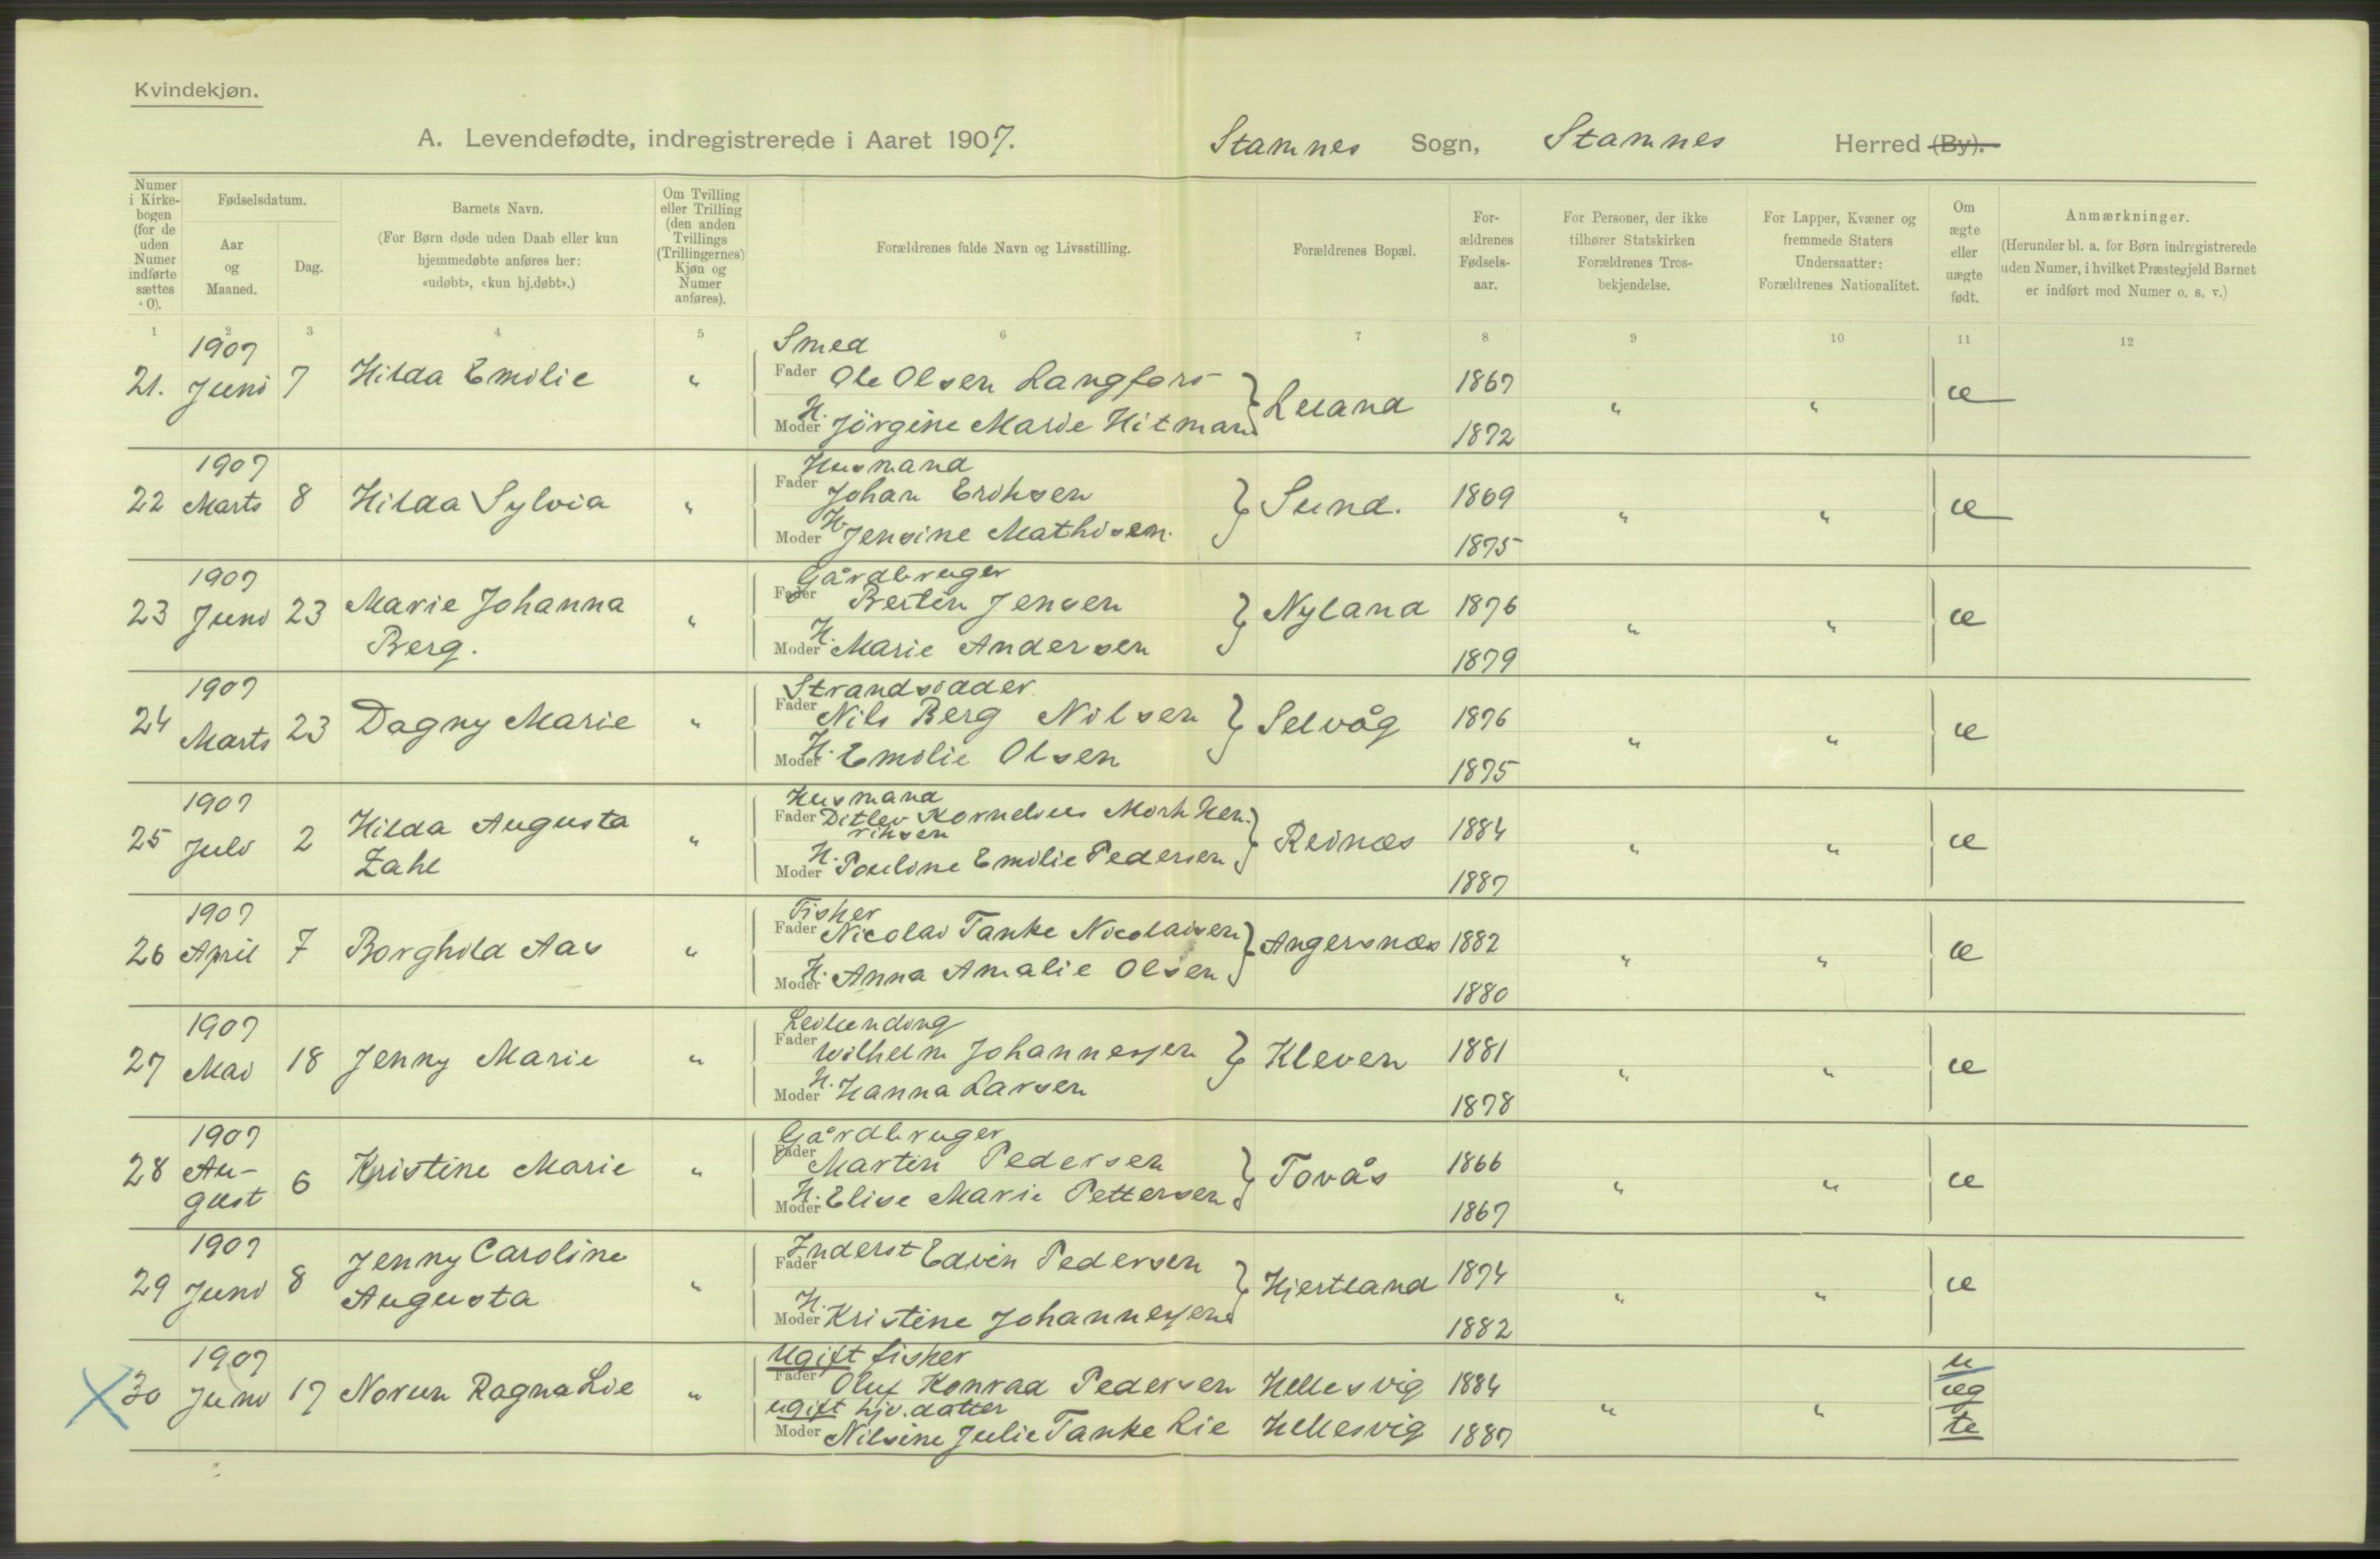 Kvindekjøn.
A. Levendefødte, indregistrerede i Aaret 1907. Stamnes Sogn, Stamnes Herred (By).
Numer i Kirkebogen (for de uden Numer indførte sættes 0).
Fødselsdatum.
Aar og Maaned.
Dag.
Barnets Navn.
(For Børn døde uden Daab eller kun hjemmedøbte anføres her: «udøbt», «kun hj.døbt».)
Om Tvilling eller Trilling (den anden Tvillings (Trillingernes) Kjøn og Numer anføres).
Forældrenes fulde Navn og Livsstilling.
Forældrenes Bopæl.
Forældrenes Fødselsaar.
For Personer, der ikke tilhører Statskirken Forældrenes Trosbekjendelse.
For Lapper, Kvæner og fremmede Staters Undersaatter: Forældrenes Nationalitet.
Om ægte eller uægte født.
Anmærkninger.
(Herunder bl. a. for Børn indregistrerede uden Numer, i hvilket Præstegjeld Barnet er indført med Numer o. s. v.)
1 2 3 4 5 6 7 8 9 10 11 12
1907 Smed
21. Juni 7 Hilda Emilie " Fader Ole Olsen Langfors Leland 1867 " " æ
H. Moder Jörgine Marie Hitman 1872
1907 Husmand
22 Marts 8 Hilda Sylvia " Fader Johan Eriksen Sund. 1869 " " æ
H. Moder Jensine Mathisen. 1875
1907 Gårdbruger
23 Juni 23 Marie Johanna Berg. " Fader Bertin Jensen Nyland 1876 " " æ
H. Moder Marie Andersen 1879
1907 Strandsidder
24 Marts 23 Dagny Marie " Fader Nils Berg Nilsen Selvåg 1876 " " æ
H. Moder Emilie Olsen 1875
1907 Husmand
25 Juli 2 Hilda Augusta Zahl " Fader Ditlev Kornelius Mork Henriksen Reinæs 1884 " " æ
H. Moder Pauline Emilie Pedersen 1887
1907 Fisker
26 April 7 Borghild Aas " Fader Nicolai Tanke Nicolaisen Angersnæs 1882 " " æ
H. Moder Anna Amalie Olsen 1880
1907 Leilending
27 Mai 18 Jenny Marie " Fader Wilhelm Johannessen Kleven 1881 " " æ
H. Moder Hanna Larsen 1878
1907 Gårdbruger
28 August 6 Kristine Marie " Fader Martin Pedersen Tovås 1866 " " æ
H. Moder Elise Marie Pettersen 1867
1907
29 Juni 8 Jenny Caroline Augusta " Fader Inderst Edvin Pedersen Hjertland 1874 " " æ
H. Moder Kristine Johannessen 1882
1907 Ugift fisker
30 Juni 17 Norun Ragna Lie " Fader Oluf Konrad Pedersen Hellesvig 1884 " " uægte
ugift hjv. datter
Moder Nilsine Julie Tanke Lie Hellesvig 1887